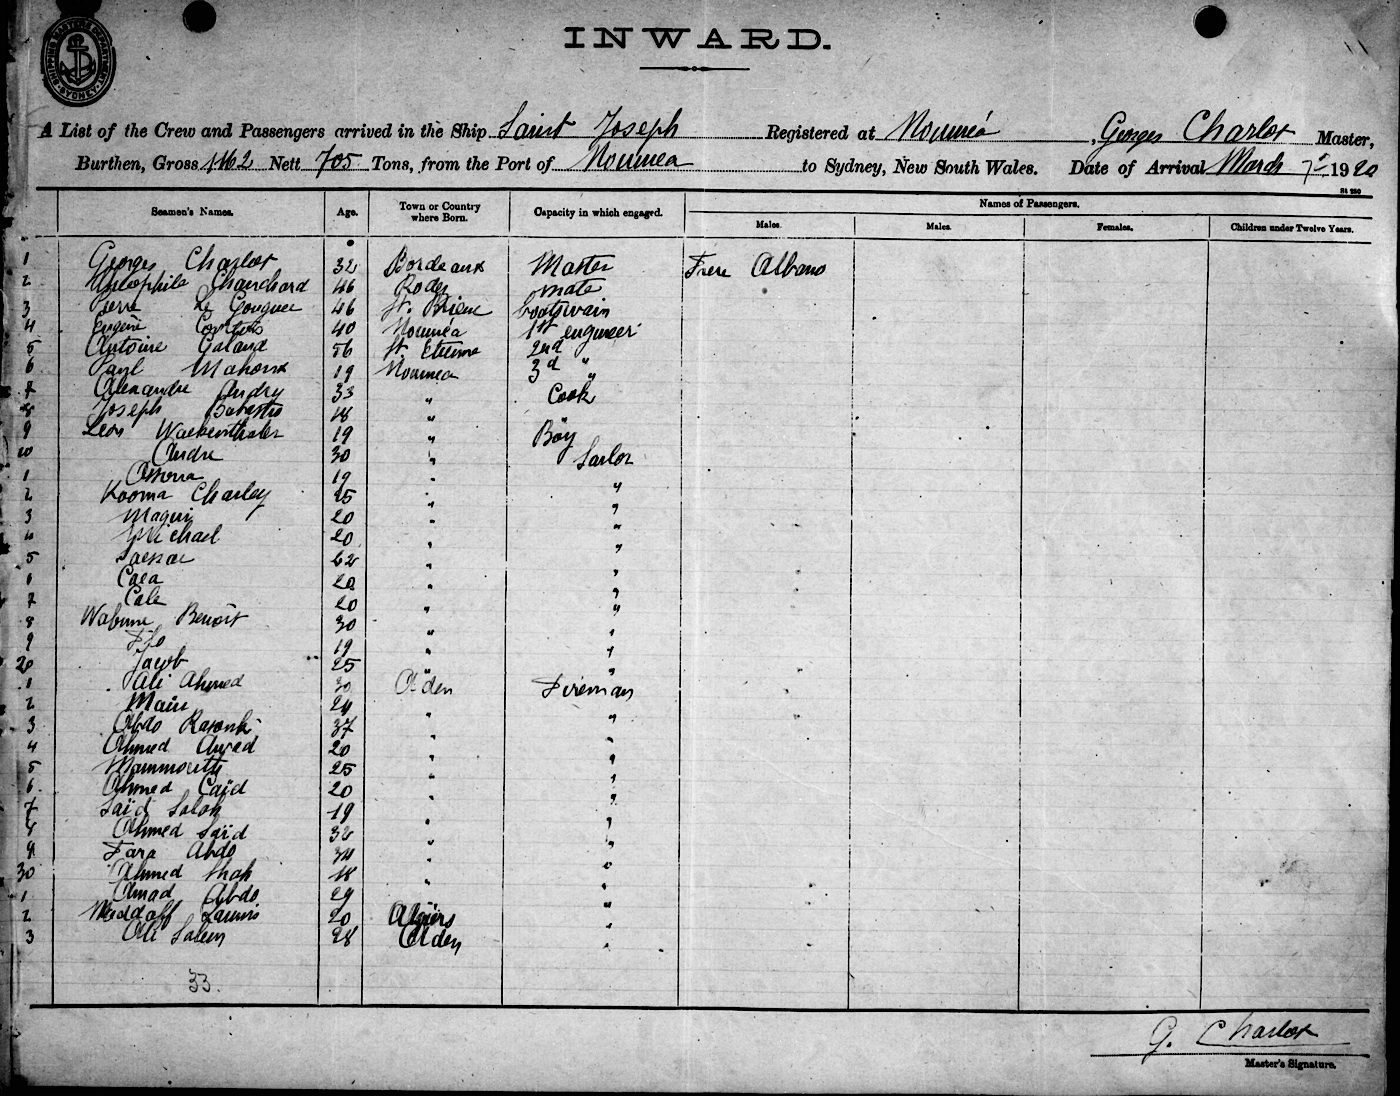 SHIPPING MASTERS DEPARTMENT SYDNEY
INWARD.
A List of the Crew and Passengers arrived in the Ship Saint Joseph Registered at Nouméa, Georges Charlot Master,
Burthen, Gross 1162 Nett 705 Tons, from the Port of Noumea to Sydney, New South Wales. Date of Arrival March 7th 1920
St 250
Seamen's Names. Age. Town or Country where Born. Capacity in which engaged. Names of Passengers.
Males. Males. Females. Children under Twelve Years.
1 Georges Charlot 32 Bordeaux Master Frere Albano
2 Théophile Chanchard 46 Rodez mate
3 Pierre Le Gouguec 46 St. Brieuc boatswain
4 Eugène 40 Nouméa 1st engineer
5 Antoine Galand 56 St. Etienne 2nd "
6 Paul Mahoux 19 Noumea 3d "
7 Alexandre Andry 33 " Cook
8 Joseph 18 "
9 Léon Wackenthaler 19 " Boy
10 Andre 30 " Sailor
1 19 " "
2 Kooma Charley 25 " "
3 Maqui 20 " "
4 Michael 20 " "
5 62 " "
6 Caea 20 " "
7 Cale 20 " "
8 Wabune Benoit 30 " "
9 Filo 19 " "
20 Jacob 25 " "
1 Ali Ahmed 30 Aden Fireman
2 Main 24 " "
3 Abdo 37 " "
4 Ahmed Awad 20 " "
5 25 " "
6 Ahmed Caïd 20 " "
7 Saïd Salah 19 " "
8 Ahmed Saïd 32 " "
9 Fara Abdo 34 " "
30 Ahmed Shah 18 " "
1 Amad Abdo 29 " "
2 20 Algiers "
3 Ali Salem 28 Aden "
33.
G. Charlot
Master's Signature.